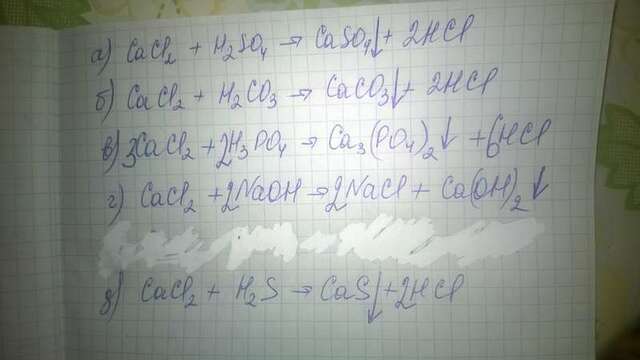 а) CaCl₂ + H₂SO₄ → CaSO₄↓ + 2HCl
б) CaCl₂ + H₂CO₃ → CaCO₃↓ + 2HCl
в) 3CaCl₂ + 2H₃PO₄ → Ca₃(PO₄)₂↓ + 6HCl
г) CaCl₂ + 2NaOH → 2NaCl + Ca(OH)₂↓
д) CaCl₂ + H₂S → CaS↓ + 2HCl